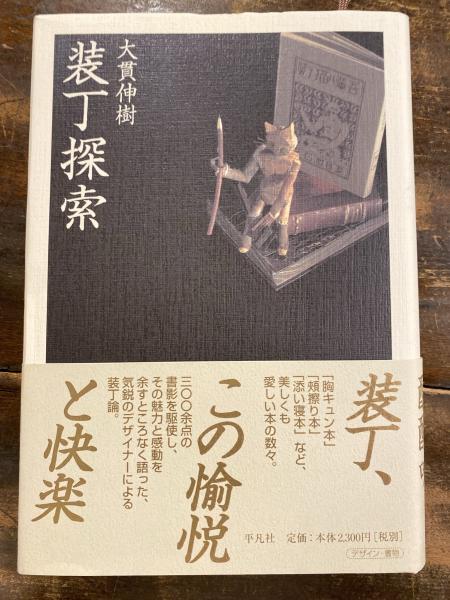 大貫伸樹
装丁探索
装丁、
この愉悦
と快楽
「胸キュン本」
「頬擦り本」
「添い寝本」など、
美しくも
愛しい本の数々。
三〇〇余点の
書影を駆使し、
その魅力と感動を
余すところなく語った、
気鋭のデザイナーによる
装丁論。
平凡社 定価:本体2,300円[税別]
デザイン・書物